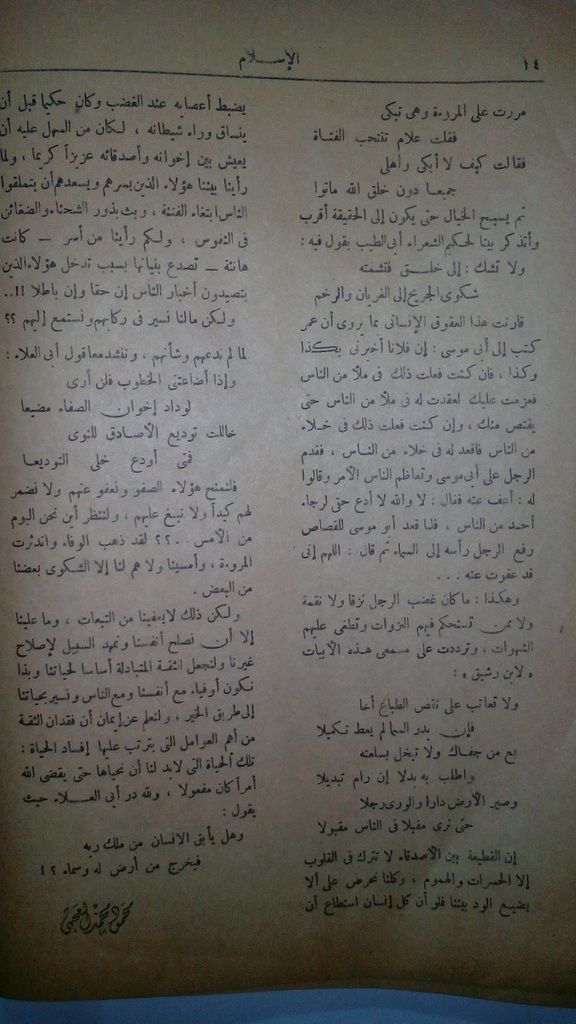 ١٤
الإسلام
مررت على المروءة وهى تبكى
فقلت علام تنتحب الفتاة
فقالت كيف لا أبكى وأهلى
جميعا دون خلق الله ماتوا
ثم يسبح الخيال حتى يكون إلى الحقيقة أقرب
وأتذكر بيتا لحكيم الشعراء أبى الطيب يقول فيه :
ولا تشك : إلى خلق فتشمته
شكوى الجريح إلى الغربان والرخم
قارنت هذا العقوق الإنسانى بما يروى أن عمر
كتب إلى أبى موسى : إن فلانا أخبرنى بكذا
وكذا ، فان كنت فعلت ذلك فى ملأ من الناس
فعزمت عليك لما قعدت له فى ملأ من الناس حتى
يقتص منك ، وإن كنت فعلت ذلك فى خلاء
من الناس فاقعد له فى خلاء من الناس ، فقدم
الرجل على أبى موسى وتعاظم الناس الأمر وقالوا
له : أعف عنه فقال : لا والله لا أدع حتى لرجاء
أحد من الناس ، فلما قعد أبو موسى للقصاص
رفع الرجل رأسه إلى السماء ثم قال : اللهم إنى
قد عفوت عنه . . .
وهكذا : ما كان غضب الرجل نزقا ولا نقمة
ولا ممن تستحكم فيهم النزوات وتطغى عليهم
الشهوات ، وترددت على مسمعى هذه الأبيات
« لابن رشيق » :
ولا تعاتب على نقص الطباع أخا
فإن بدر السما لم يعط تكميلا
بع من جفاك ولا تبخل بسلعته
واطلب به بدلا إن رام تبديلا
وصير الأرض دارا والورى رجلا
حتى ترى مقبلا فى الناس مقبولا
إن القطيعة بين الأصدقاء لا تترك فى القلوب
إلا الحسرات والهموم ، وكلنا نحرص على ألا
يضيع الود بيننا فلو أن كل إنسان استطاع أن
يضبط أعصابه عند الغضب وكان حكيما قبل أن
ينساق وراء شيطانه ، لكان من السهل عليه أن
يعيش بين إخوانه وأصدقائه عزيزاً كريما ، ولما
رأينا بيننا هؤلاء الذين يسرهم ويسعدهم أن يتملقوا
الناس ابتغاء الفتنة ، وبث بذور الشحناء والضغائن
فى النفوس ، ولكم رأينا من أسر — كانت
هانئة — تصدع بنيانها بسبب تدخل هؤلاء الذين
يتصيدون أخبار الناس إن حقا وإن باطلا !!..
ولكن مالنا نسير فى ركابهم ونستمع إليهم ؟؟
لما لم ندعهم وشأنهم ، وننشد معا قول أبى العلاء :
وإذا أضاعتنى الخطوب فلن أرى
لوداد إخوان الصفاء مضيعا
خاللت توديع الأصادق للنوى
فمتى أودع خلى التوديعا
فلنمنح هؤلاء الصفو ونعفو عنهم ولا نضمر
لهم كيداً ولا نبغ عليهم ، ولننظر أين نحن اليوم
من الأمس . . ؟؟ لقد ذهب الوفاء واندثرت
المروءة ، وأمسينا ولا هم لنا إلا الشكوى بعضنا
من البعض .
ولكن ذلك لا يعفينا من التبعات ، وما علينا
إلا أن نصلح أنفسنا ونمهد السبيل لإصلاح
غيرنا ولنجعل الثقة المتبادلة أساسا لحياتنا وبذا
نكون أوفياء مع أنفسنا ومع الناس ونسير بحياتنا
إلى طريق الخير ، ولنعلم عن إيمان أن فقدان الثقة
من أهم العوامل التى يترتب عليها إفساد الحياة :
تلك الحياة التى لابد لنا أن نحياها حتى يقضى الله
أمراً كان مفعولا ، ولله در أبى العلاء حيث
يقول :
وهل يأبق الانسان من ملك ربه
فيخرج من أرض له وسماء ؟!